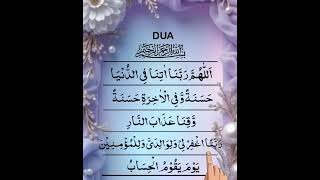 DUA
بِسْمِ اللهِ الرَّحْمٰنِ الرَّحِيْمِ
اَللّٰهُمَّ رَبَّنَا اٰتِنَا فِي الدُّنْيَا
حَسَنَةً وَّفِي الْاٰخِرَةِ حَسَنَةً
وَّقِنَا عَذَابَ النَّارِ
رَبَّنَا اغْفِرْ لِيْ وَلِوَالِدَيَّ وَلِلْمُؤْمِنِيْنَ
يَوْمَ يَقُوْمُ الْحِسَابُ